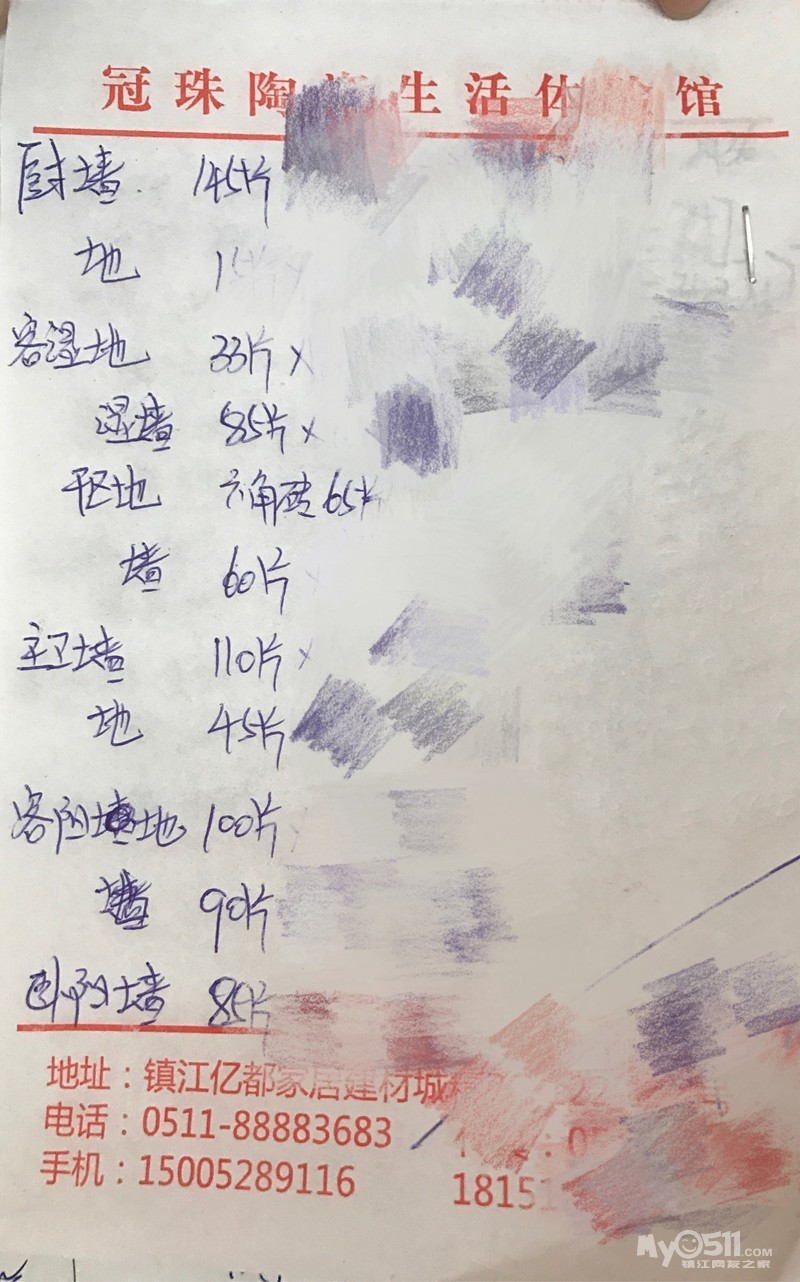 冠珠陶 生活体 馆
厨墙 145片
地
客湿地 33片 x
湿墙 85片 x
干区地 六角砖65片
墙 60片
主卫墙 110片 x
地 45片
客阳地 100片
墙 90片
卧阳墙 85片
地址：镇江亿都家居建材城
电话：0511-88883683
手机：15005289116 18151
My0511.COM
镇江网友之家